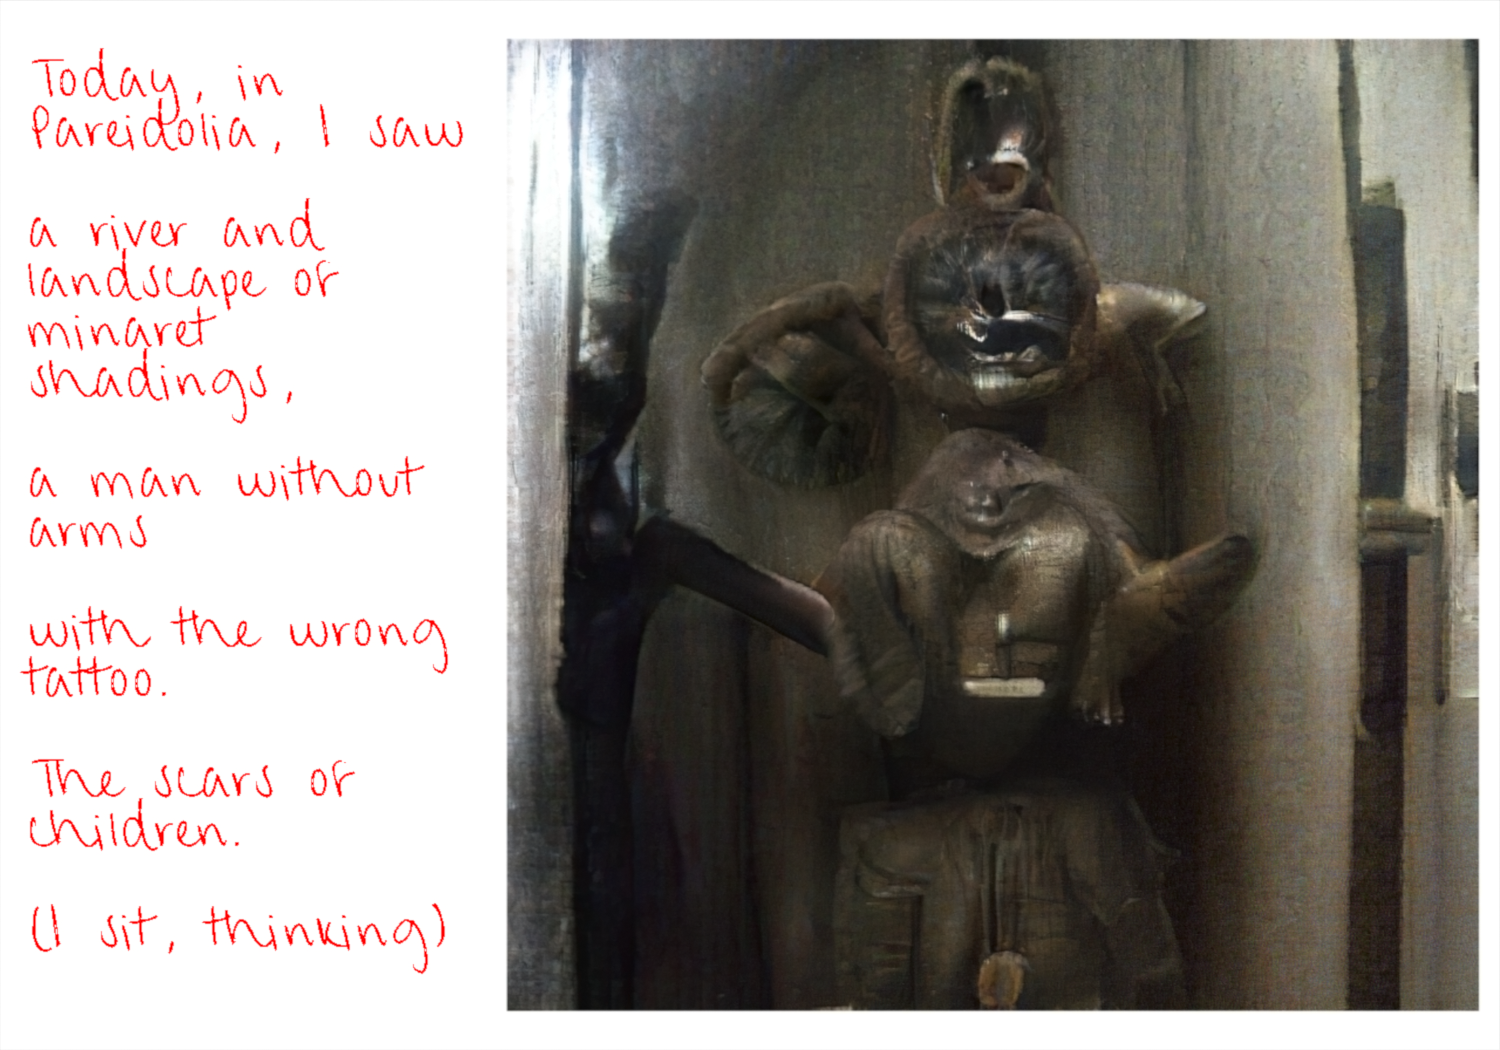 Today, in
Pareidolia, I saw
a river and
landscape of
minaret
shadings,
a man without
arms
with the wrong
tattoo.
The scars of
children.
(I sit, thinking)